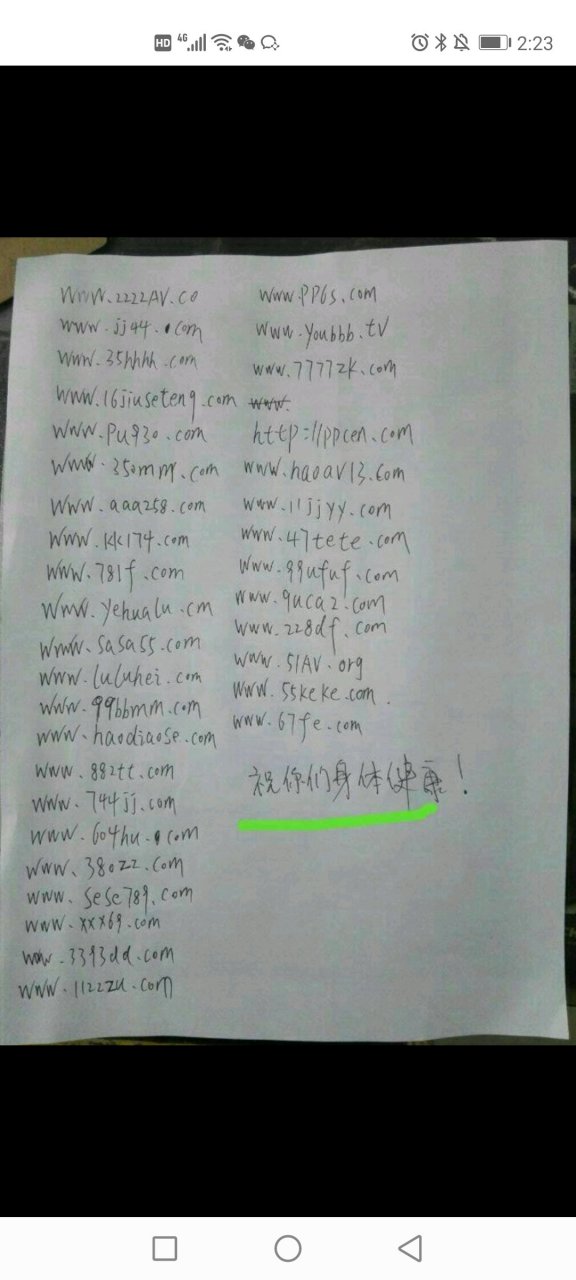 HD 4G 2:23
www.2222AV.co
www.jj44.com
www.35hhhh.com
www.16jiuseteng.com
www.pu930.com
www.350mm.com
www.aaa258.com
www.kk174.com
www.781f.com
www.yehualu.cm
www.sasa55.com
www.luluhei.com
www.99bbmm.com
www.haodiaose.com
www.882tt.com
www.744jj.com
www.604hu.com
www.380zz.com
www.sese789.com
www.xxx69.com
www.3393dd.com
www.1122zu.com
www.PP6s.com
www.youbbb.tv
www.7777zk.com
www.
http://ppcen.com
www.haoav13.com
www.11jjyy.com
www.47tete.com
www.99ufuf.com
www.9uca2.com
www.228df.com
www.51AV.org
www.55keke.com.
www.67fe.com
祝你们身体健康！